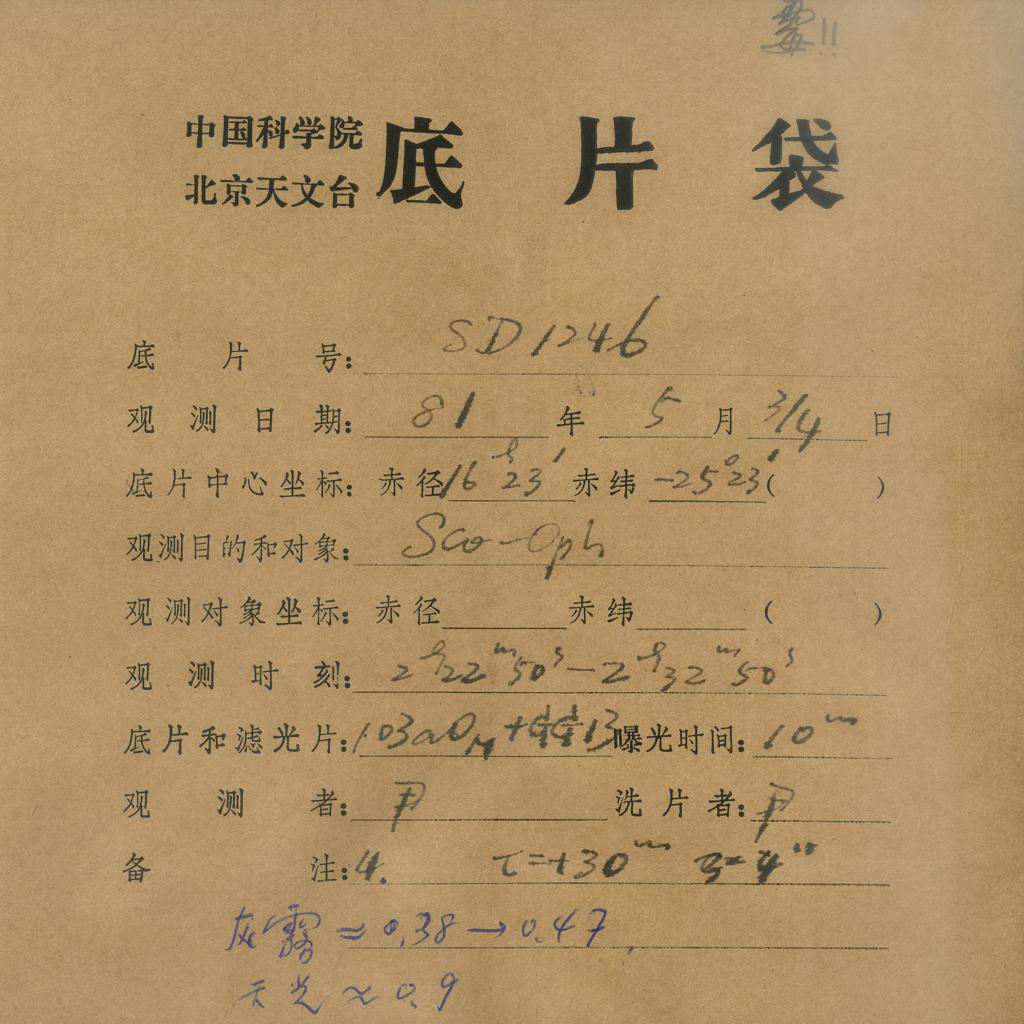 雾!!
中国科学院
北京天文台
底片袋
底片号: SD1246
观测日期: 81年 5月 3/4日
底片中心坐标: 赤径16ʰ23′ 赤纬 -25°23′( )
观测目的和对象: Sco-Oph
观测对象坐标: 赤径 赤纬 ( )
观测时刻: 2ʰ22ᵐ50ˢ-2ʰ32ᵐ50ˢ
底片和滤光片: 103aO 13 曝光时间: 10ᵐ
观测者: 尹 洗片者: 尹
备注: 4. τ=+30ᵐ
灰雾≈0.38→0.47,
天光≈0.9